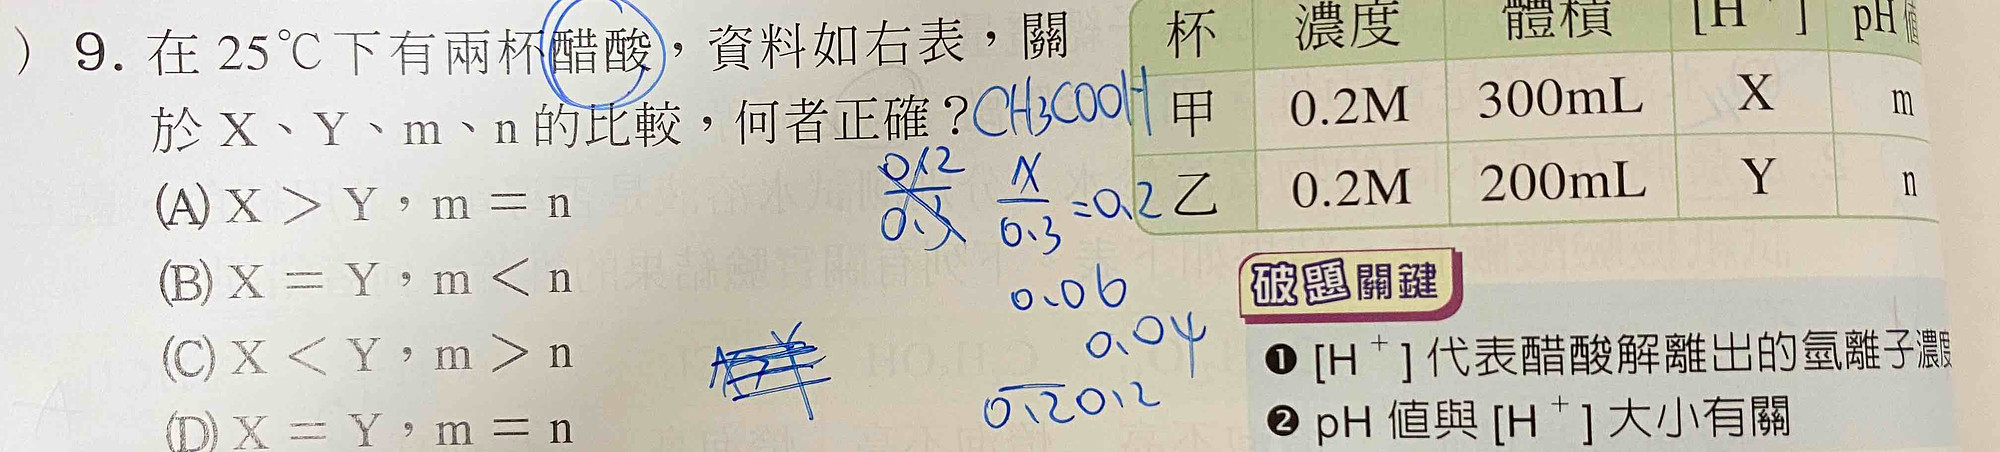 ) 9. 在 25℃下有兩杯醋酸，資料如右表，關
於 X、Y、m、n 的比較，何者正確？CH3COOH
(A) X > Y，m = n
(B) X = Y，m < n
(C) X < Y，m > n
(D) X = Y，m = n
0.2
0.3
X
0.3
=0.2
0.06
0.04
0.2 0.2
杯 濃度 體積 [H⁺] pH值
甲 0.2M 300mL X m
乙 0.2M 200mL Y n
破題關鍵
❶ [H⁺] 代表醋酸解離出的氫離子濃度
❷ pH 值與 [H⁺] 大小有關